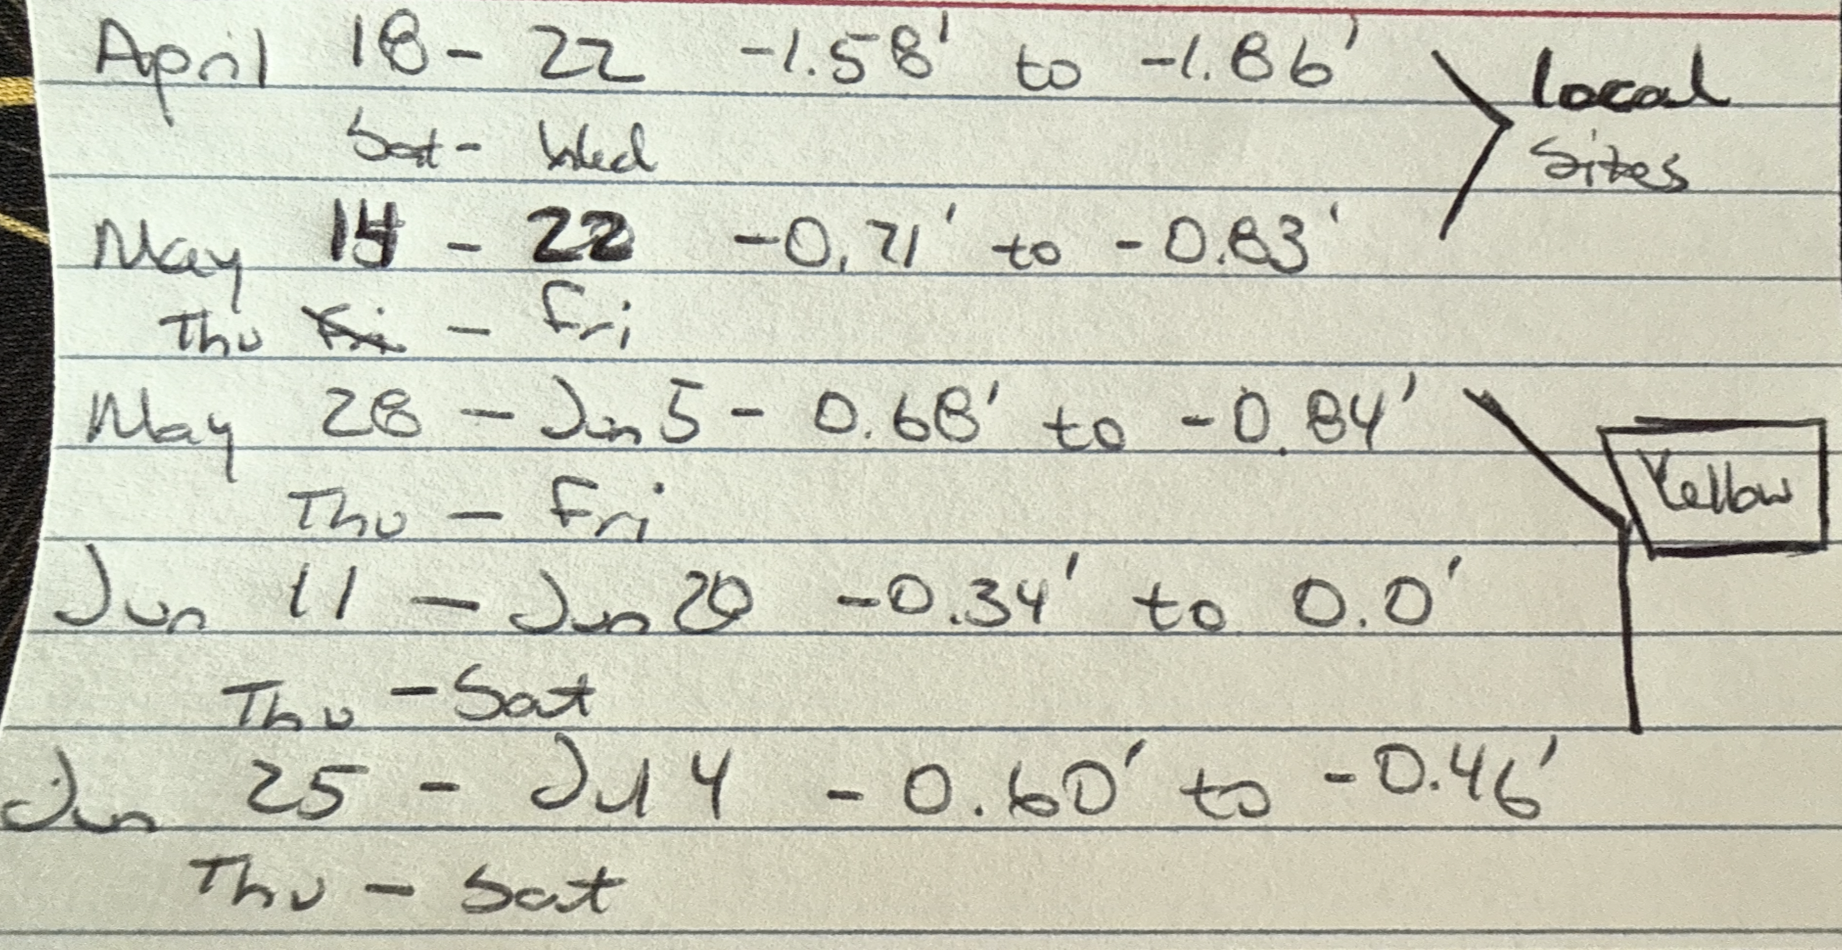 April 18 - 22 -1.58' to -1.86'
Sat - Wed
local
sites
May 14 - 22 -0.71' to -0.83'
Thu Fri - Fri
May 28 - Jun 5 - 0.68' to -0.84'
Thu - Fri
Yellow
Jun 11 - Jun 20 -0.34' to 0.0'
Thu - Sat
Jun 25 - Jul 4 -0.60' to -0.46'
Thu - Sat